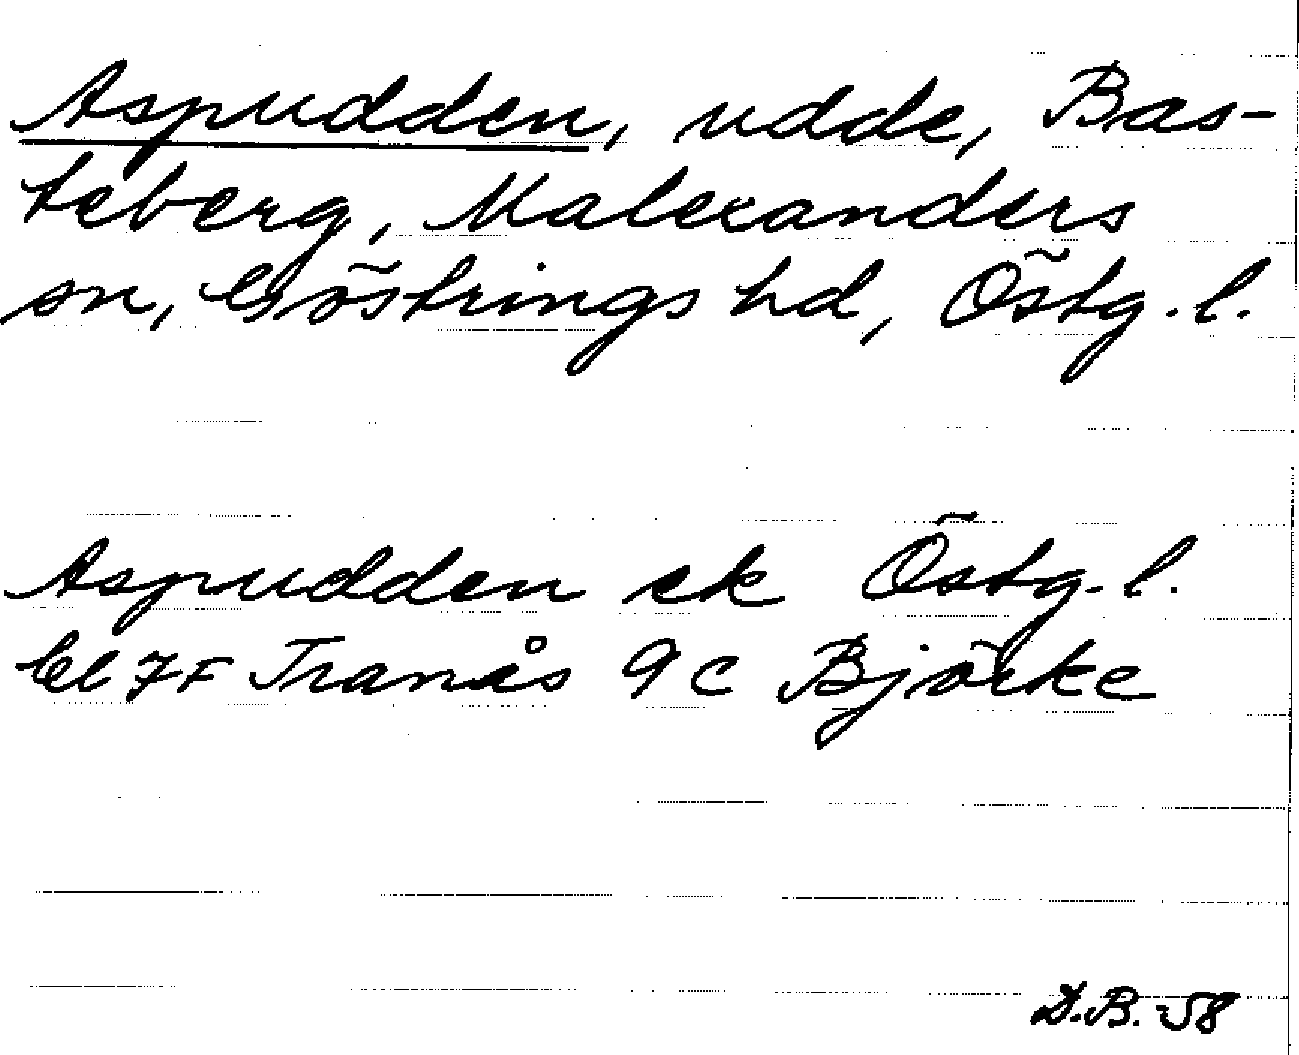 Aspudden, udde, Bas-
teberg, Malexanders
sn, Göstrings hd, Östg. l.
Aspudden ek Östg. l.
bl 7F Tranås 9 c Björke
D.B. -58